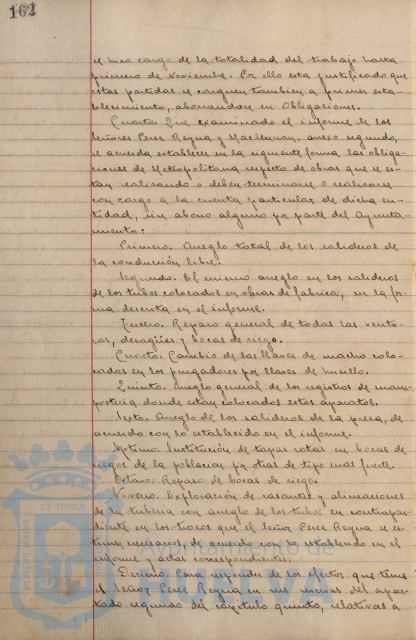 162
se hizo cargo de la totalidad del trabajo hasta
primero de Noviembre. Por ello esta justificado que
estas partidas se carguen tambien a primer esta-
blecimiento, abonandose en Obligaciones.
Cuarto. Que examinado el informe de los
Señores Perez Reyna y anexo segundo,
se acuerda establecer en la siguiente forma las obliga-
ciones de Metropolitana respecto de obras que se es-
tan realizando o deben terminarse o realizarse
con cargo a la cuenta particular de dicha en-
tidad, sin abono alguno por parte del Ayunta-
miento:
Primero. Arreglo total de los salideros de
la condución libre.
Segundo. El mismo arreglo en los salideros
de los tubos colocados en obras de fabrica, en la for-
ma descrita en el informe.
Tercero. Reparo general de todas las vento-
sas, desagües y bocas de riego.
Cuarto. Cambio de las llaves de macho colo-
cadas en los purgadores por llaves de husillo.
Quinto. Arreglo general de los registros de mam-
posteria donde estan colocados estos aparatos.
Sexto. Arreglo de los salideros de la presa, de
acuerdo con lo establecido en el informe.
Septimo. Institución de tapas rotas en bocas de
riegos de la poblacion por otras de tipo mas fuerte.
Octavo. Reparo de bocas de riego.
Noveno. Exploración de rasantes y alineaciones
de la tuberia con arreglo de los tubos en contrapen-
diente en los trozos que el Señor Perez Reyna es-
time necesarios, de acuerdo con lo establecido en el
informe y actas correspondientes.
Decimo. Para responder de los efectos que teme
el Señor Perez Reyna en sus del apar-
tado segundo del capitulo quinto, relativas a
ET TERRA
Ayuntamiento de